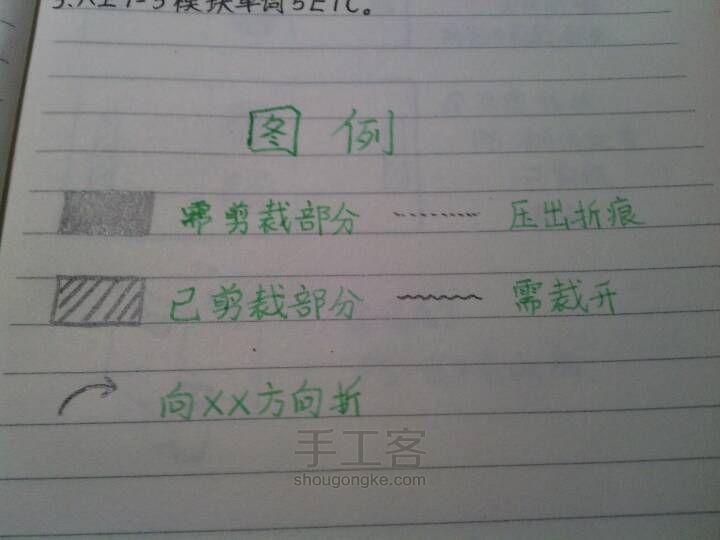 模块单词5ETC。
图例
需剪裁部分 压出折痕
已剪裁部分 需裁开
向XX方向折
手工客
shougongke.com